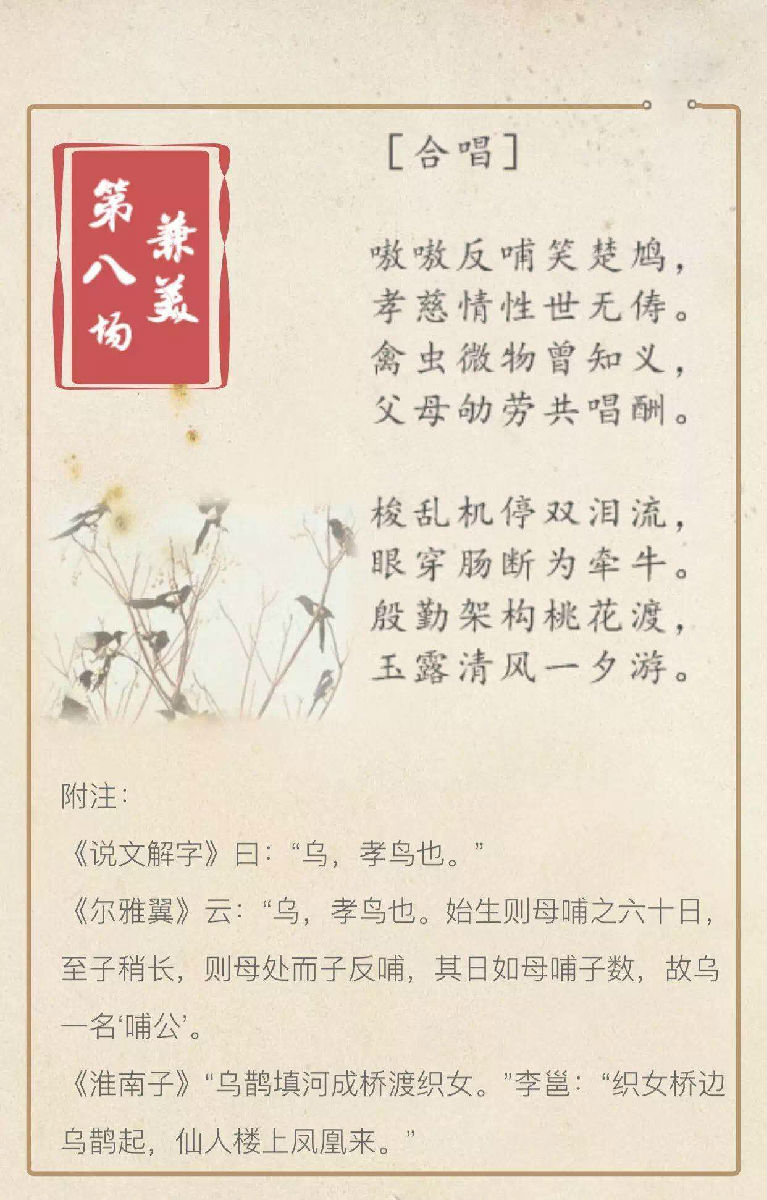 第八场
兼美
[合唱]
嗷嗷反哺笑楚鸠，
孝慈情性世无俦。
禽虫微物曾知义，
父母劬劳共唱酬。
梭乱机停双泪流，
眼穿肠断为牵牛。
殷勤架构桃花渡，
玉露清风一夕游。
附注：
《说文解字》曰：“乌，孝鸟也。”
《尔雅翼》云：“乌，孝鸟也。始生则母哺之六十日，
至子稍长，则母处而子反哺，其日如母哺子数，故乌
一名‘哺公’。
《淮南子》“乌鹊填河成桥渡织女。”李邕：“织女桥边
乌鹊起，仙人楼上凤凰来。”